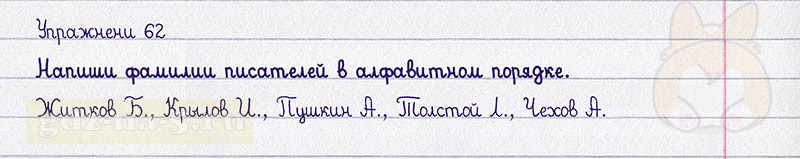 Упражнени 62
Напиши фамилии писателей в алфавитном порядке.
Житков Б., Крылов И., Пушкин А., Толстой Л., Чехов А.
gdz-na-5.ru